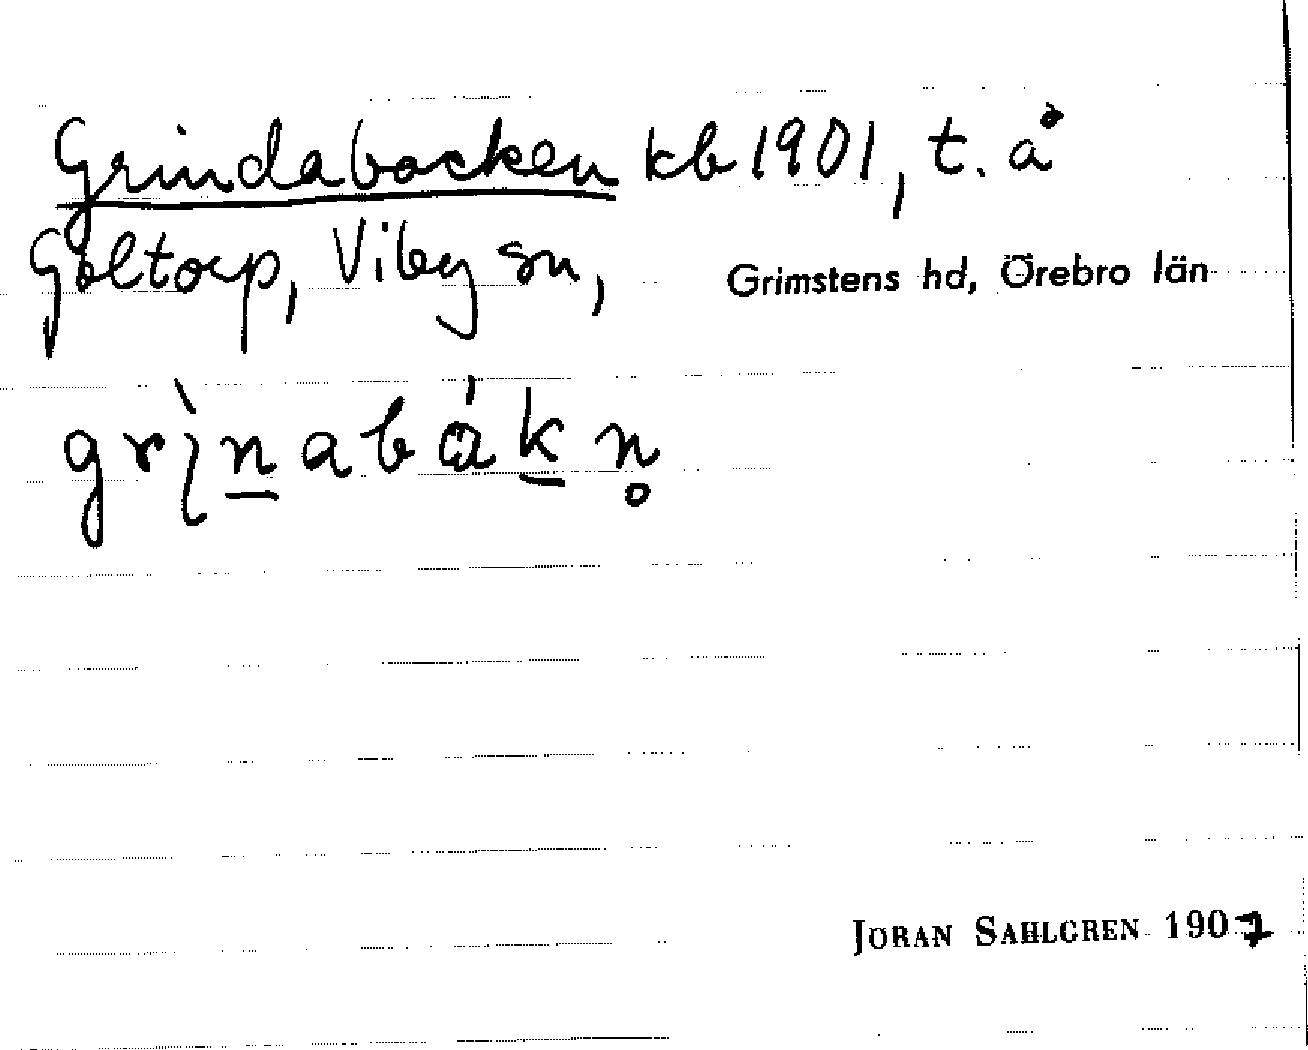 Grindabacken kb 1901, t. å
Goltorp, Viby sn, Grimstens hd, Örebro län
JÖRAN SAHLGREN 1907